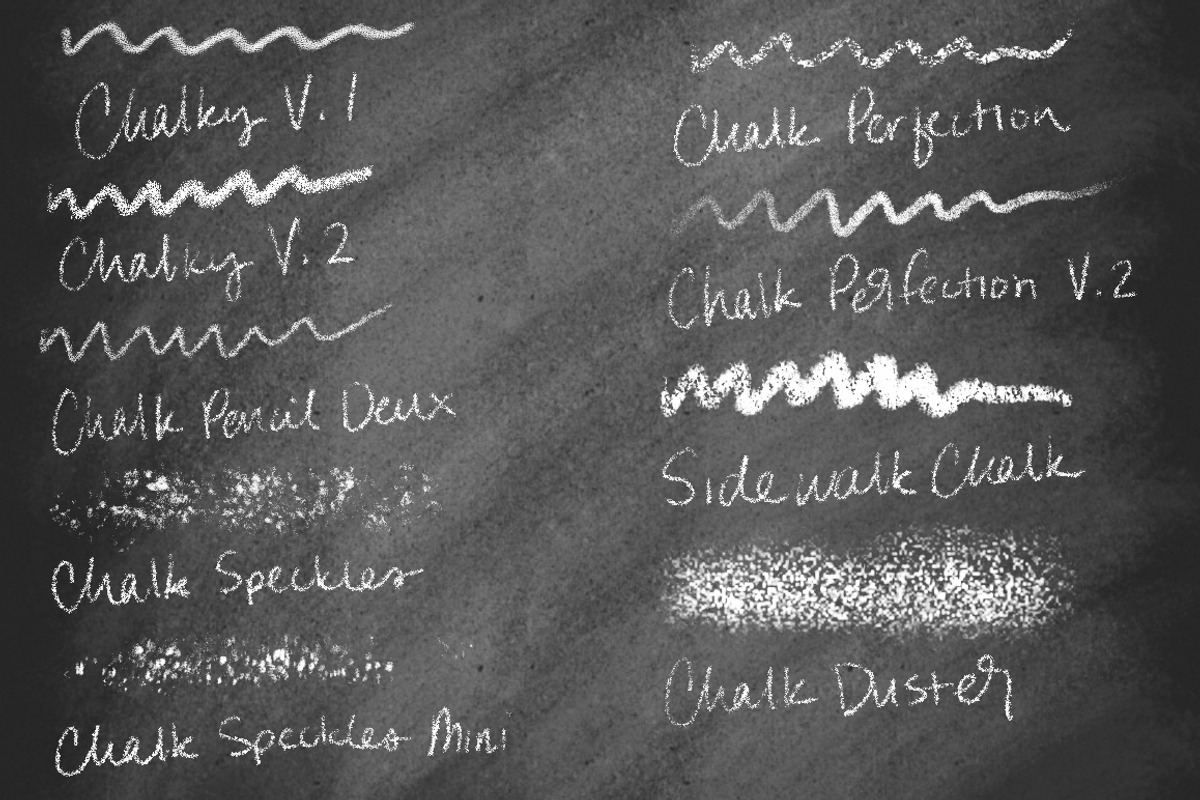 Chalky V.1
Chalky V.2
Chalk Pencil Deux
Chalk Speckles
Chalk Speckles Mini
Chalk Perfection
Chalk Perfection V.2
Sidewalk Chalk
Chalk Duster